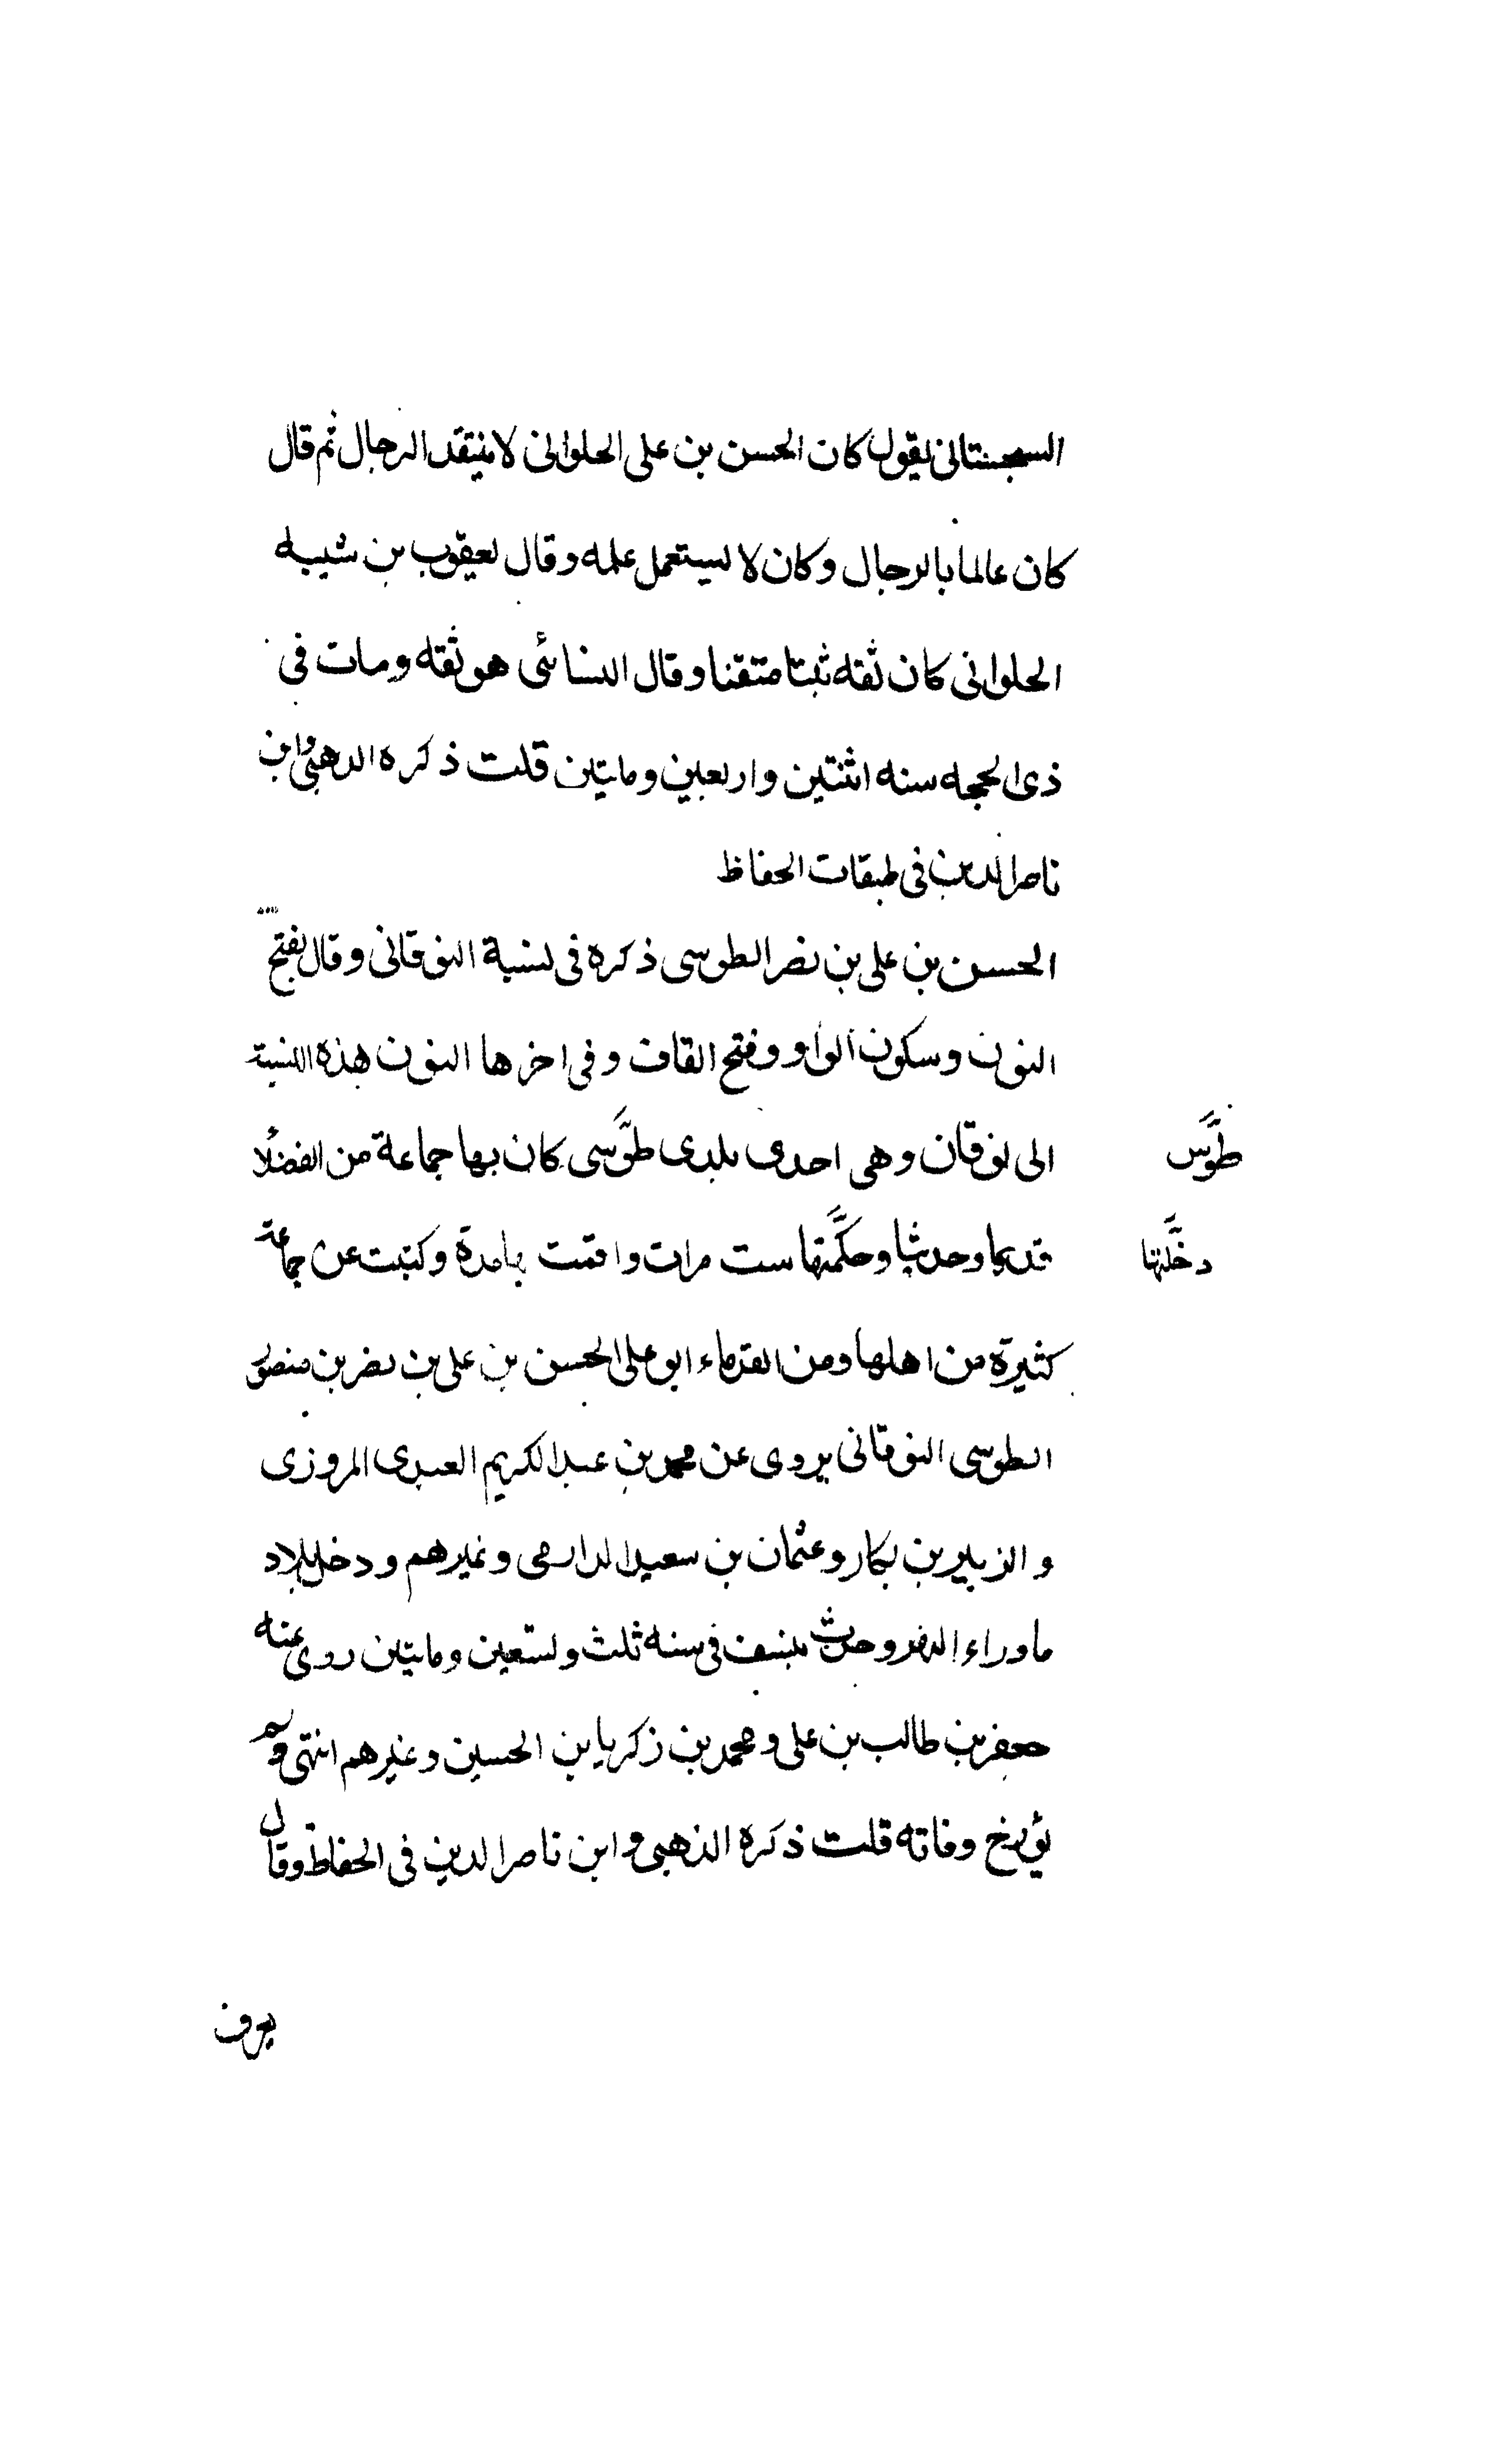 السجستانى يقول كان الحسن بن على الحلوانى لا ينتقد الرجال ثم قال
كان عالما بالرجال وكان لا يستعمل علمه وقال يعقوب بن شيبه
الحلوانى كان ثقه ثبتا متقنا وقال النسائى هو ثقه ومات فى
ذى الحجه سنه اثنتين واربعين ومايتين قلت ذكره الذهبى وابن
ناصر الدين فى طبقات الحفاظ
الحسن بن على بن نصر الطوسى ذكره فى نسبة النوقانى وقال بفتح
النون وسكون الواو وفتح القاف وفى اخرها النون هذه النسبة
الى نوقان وهى احدى بلدى طوسى كان بها جماعة من الفضلا
طوس
قديما وحديثا وحكمتها ست مرات واقمت بها مدة وكتبت عن جماعة
دخلتها
كثيرة من اهلها ومن القدماء ابو على الحسن بن على بن نصر بن منصور
الطوسى النوقانى يروى عن محمد بن عبد الكريم العبدى المروزى
والزبير بن بكار وعثمان بن سعيد الدارمى وغيرهم ودخل بلاد
ماوراء النهر وحدث بنسف فى سنه ثلث وتسعين ومايتين روى عنه
جعفر بن طالب بن على ومحمد بن زكريا بن الحسين وغيرهم انتهى ولم
يؤرخ وفاته قلت ذكره الذهبى وابن ناصر الدين فى الحفاظ وقال
يعرف